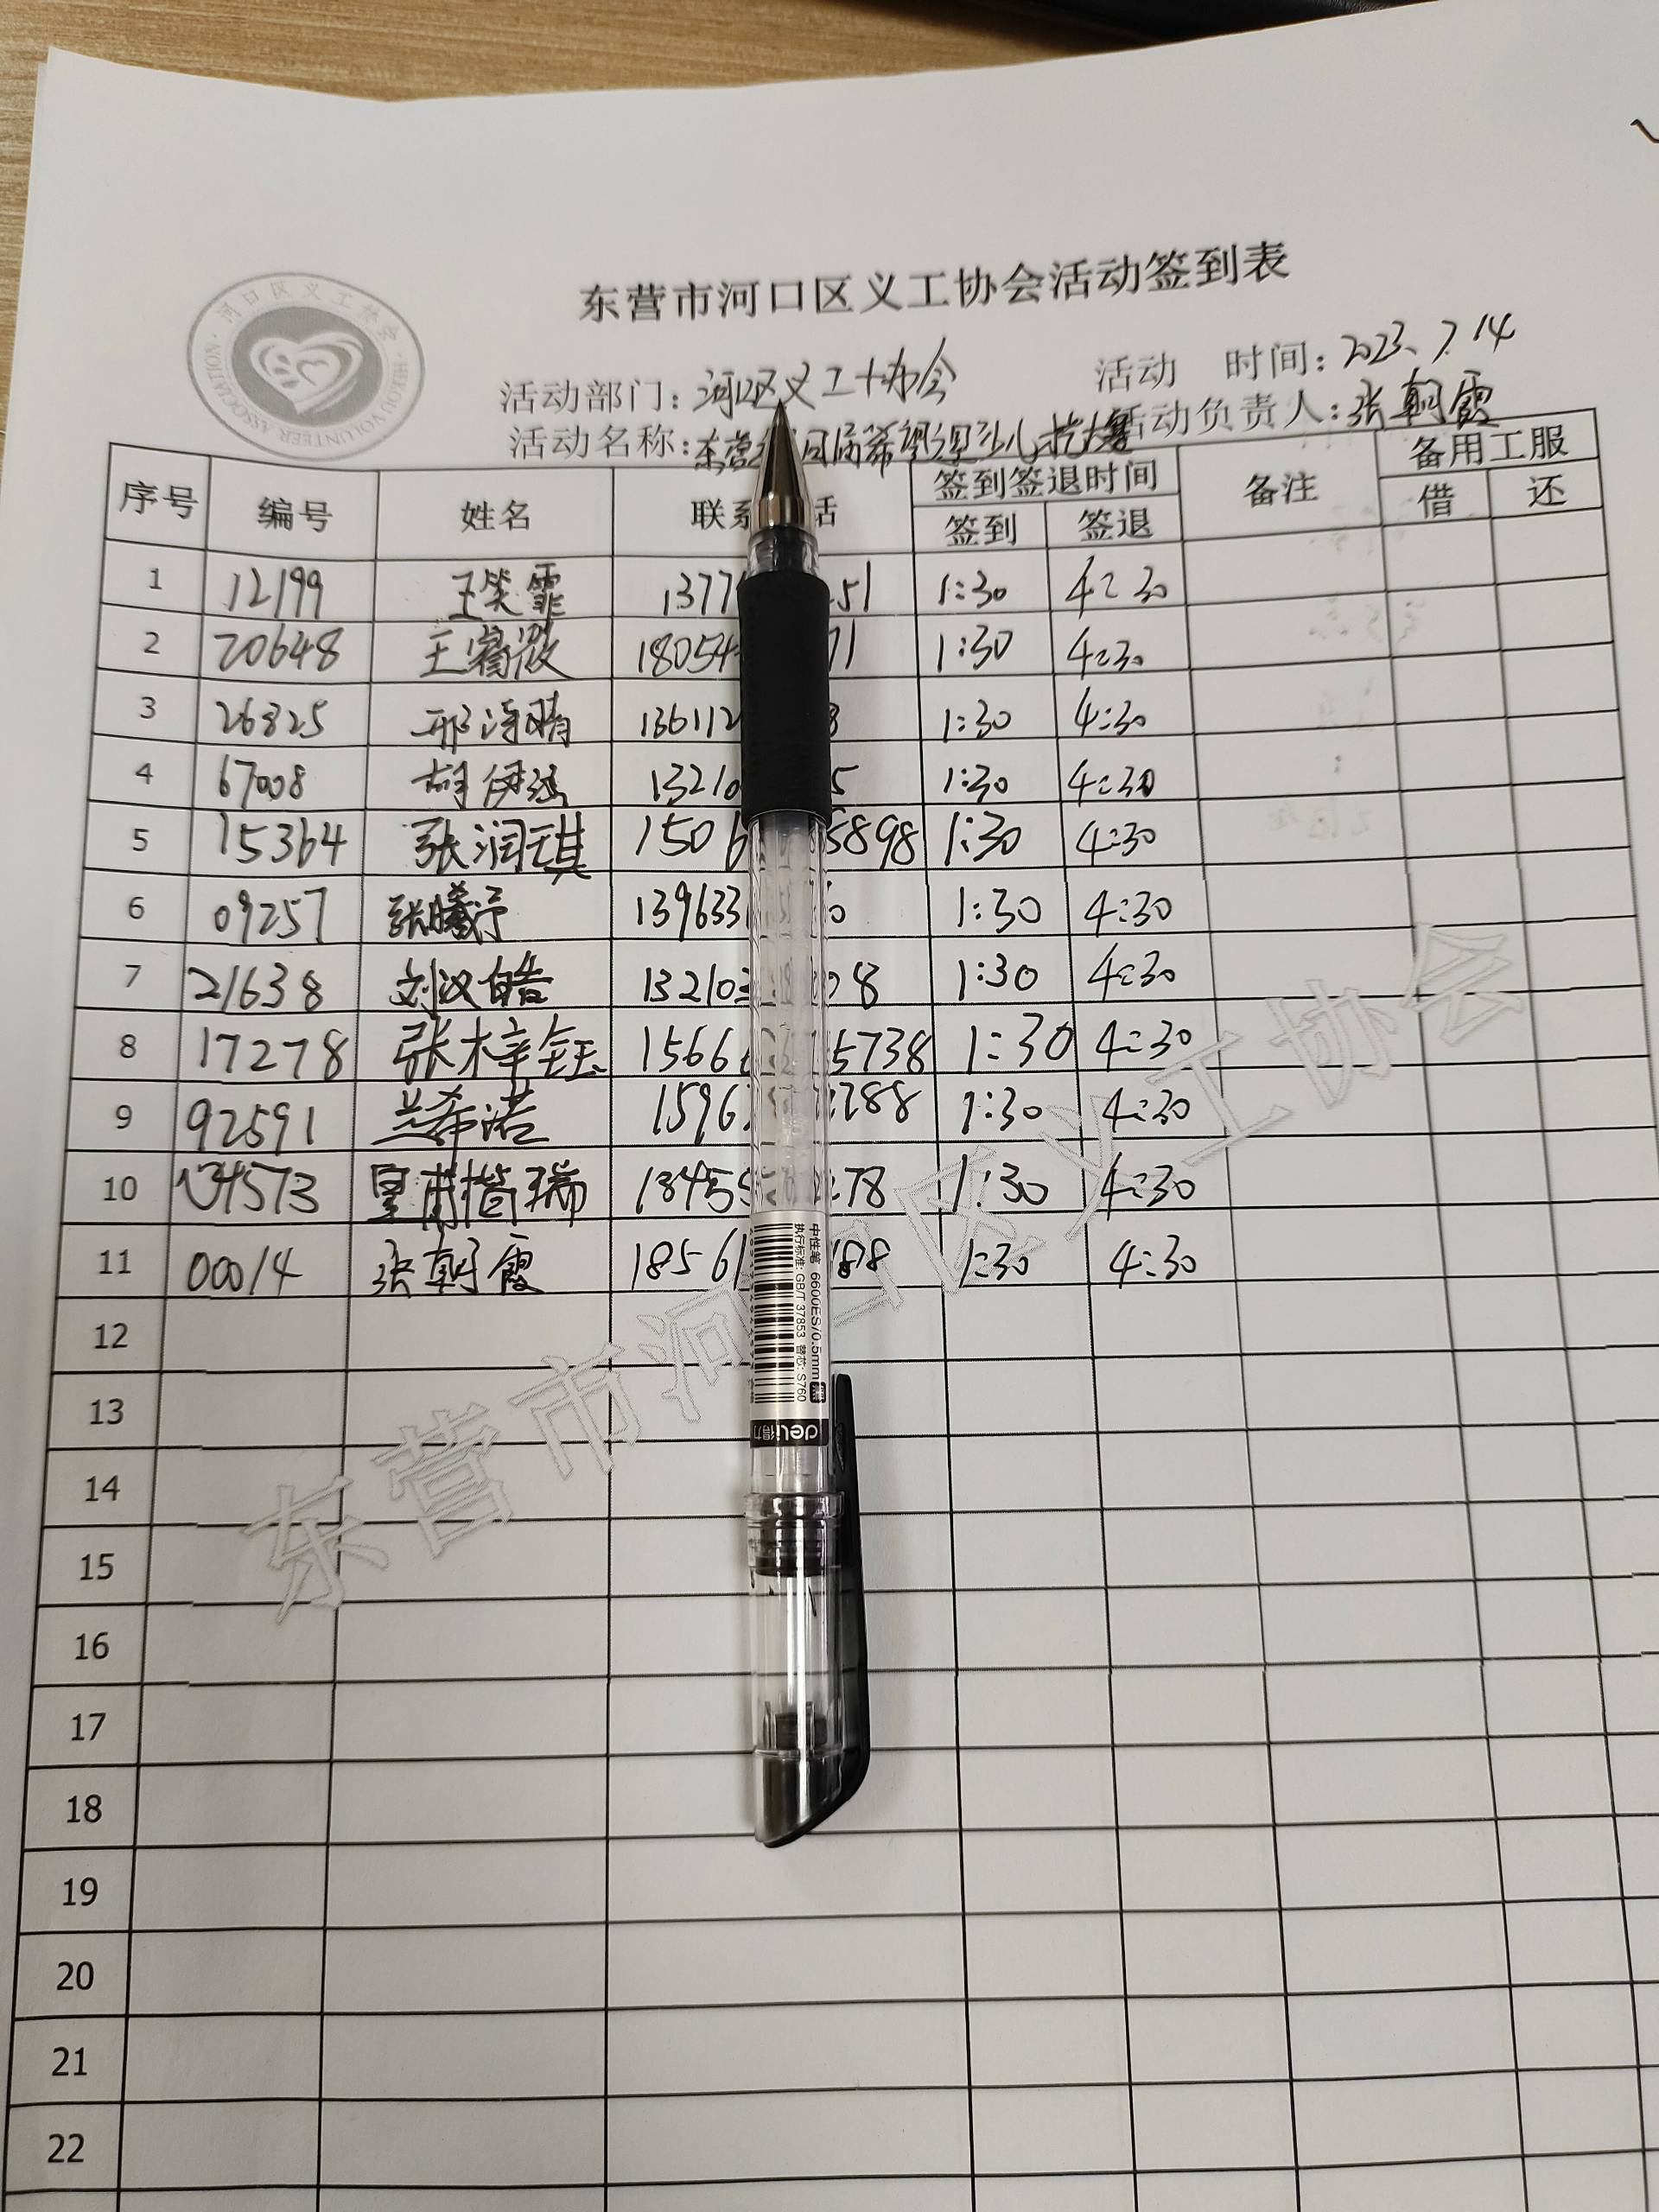 东营市河口区义工协会活动签到表
河口区义工协会
HEKOU VOLUNTEER ASSOCIATION
活动部门：河口区义工协会 活动 时间：2023、7.14
活动名称：东营 届希望 少儿 大赛 活动负责人：张朝霞
序号 编号 姓名 联系 话 签到签退时间 备注 备用工服
签到 签退 借 还
1 12199 王笑霏 1377 51 1:30 4:30
2 20648 王睿 18054 71 1:30 4:30
3 26825 邢诗晴 136112 8 1:30 4:30
4 67008 胡伊涵 13210 5 1:30 4:30
5 15364 张润琪 1506 5898 1:30 4:30
6 09257 张曦予 139633 0 1:30 4:30
7 21638 刘汉皓 132103 08 1:30 4:30
8 17278 张梓钰 1566 5738 1:30 4:30
9 92591 兰希诺 1596 288 1:30 4:30
10 34573 皇甫楷瑞 13455 278 1:30 4:30
11 00014 张朝霞 18561 188 1:30 4:30
12
13
14
15
16
17
18
19
20
21
22
中性笔 6600ES/0.5mm 黑
执行标准: GB/T 37853 替芯: S760
deli得力
东营市河口区义工协会